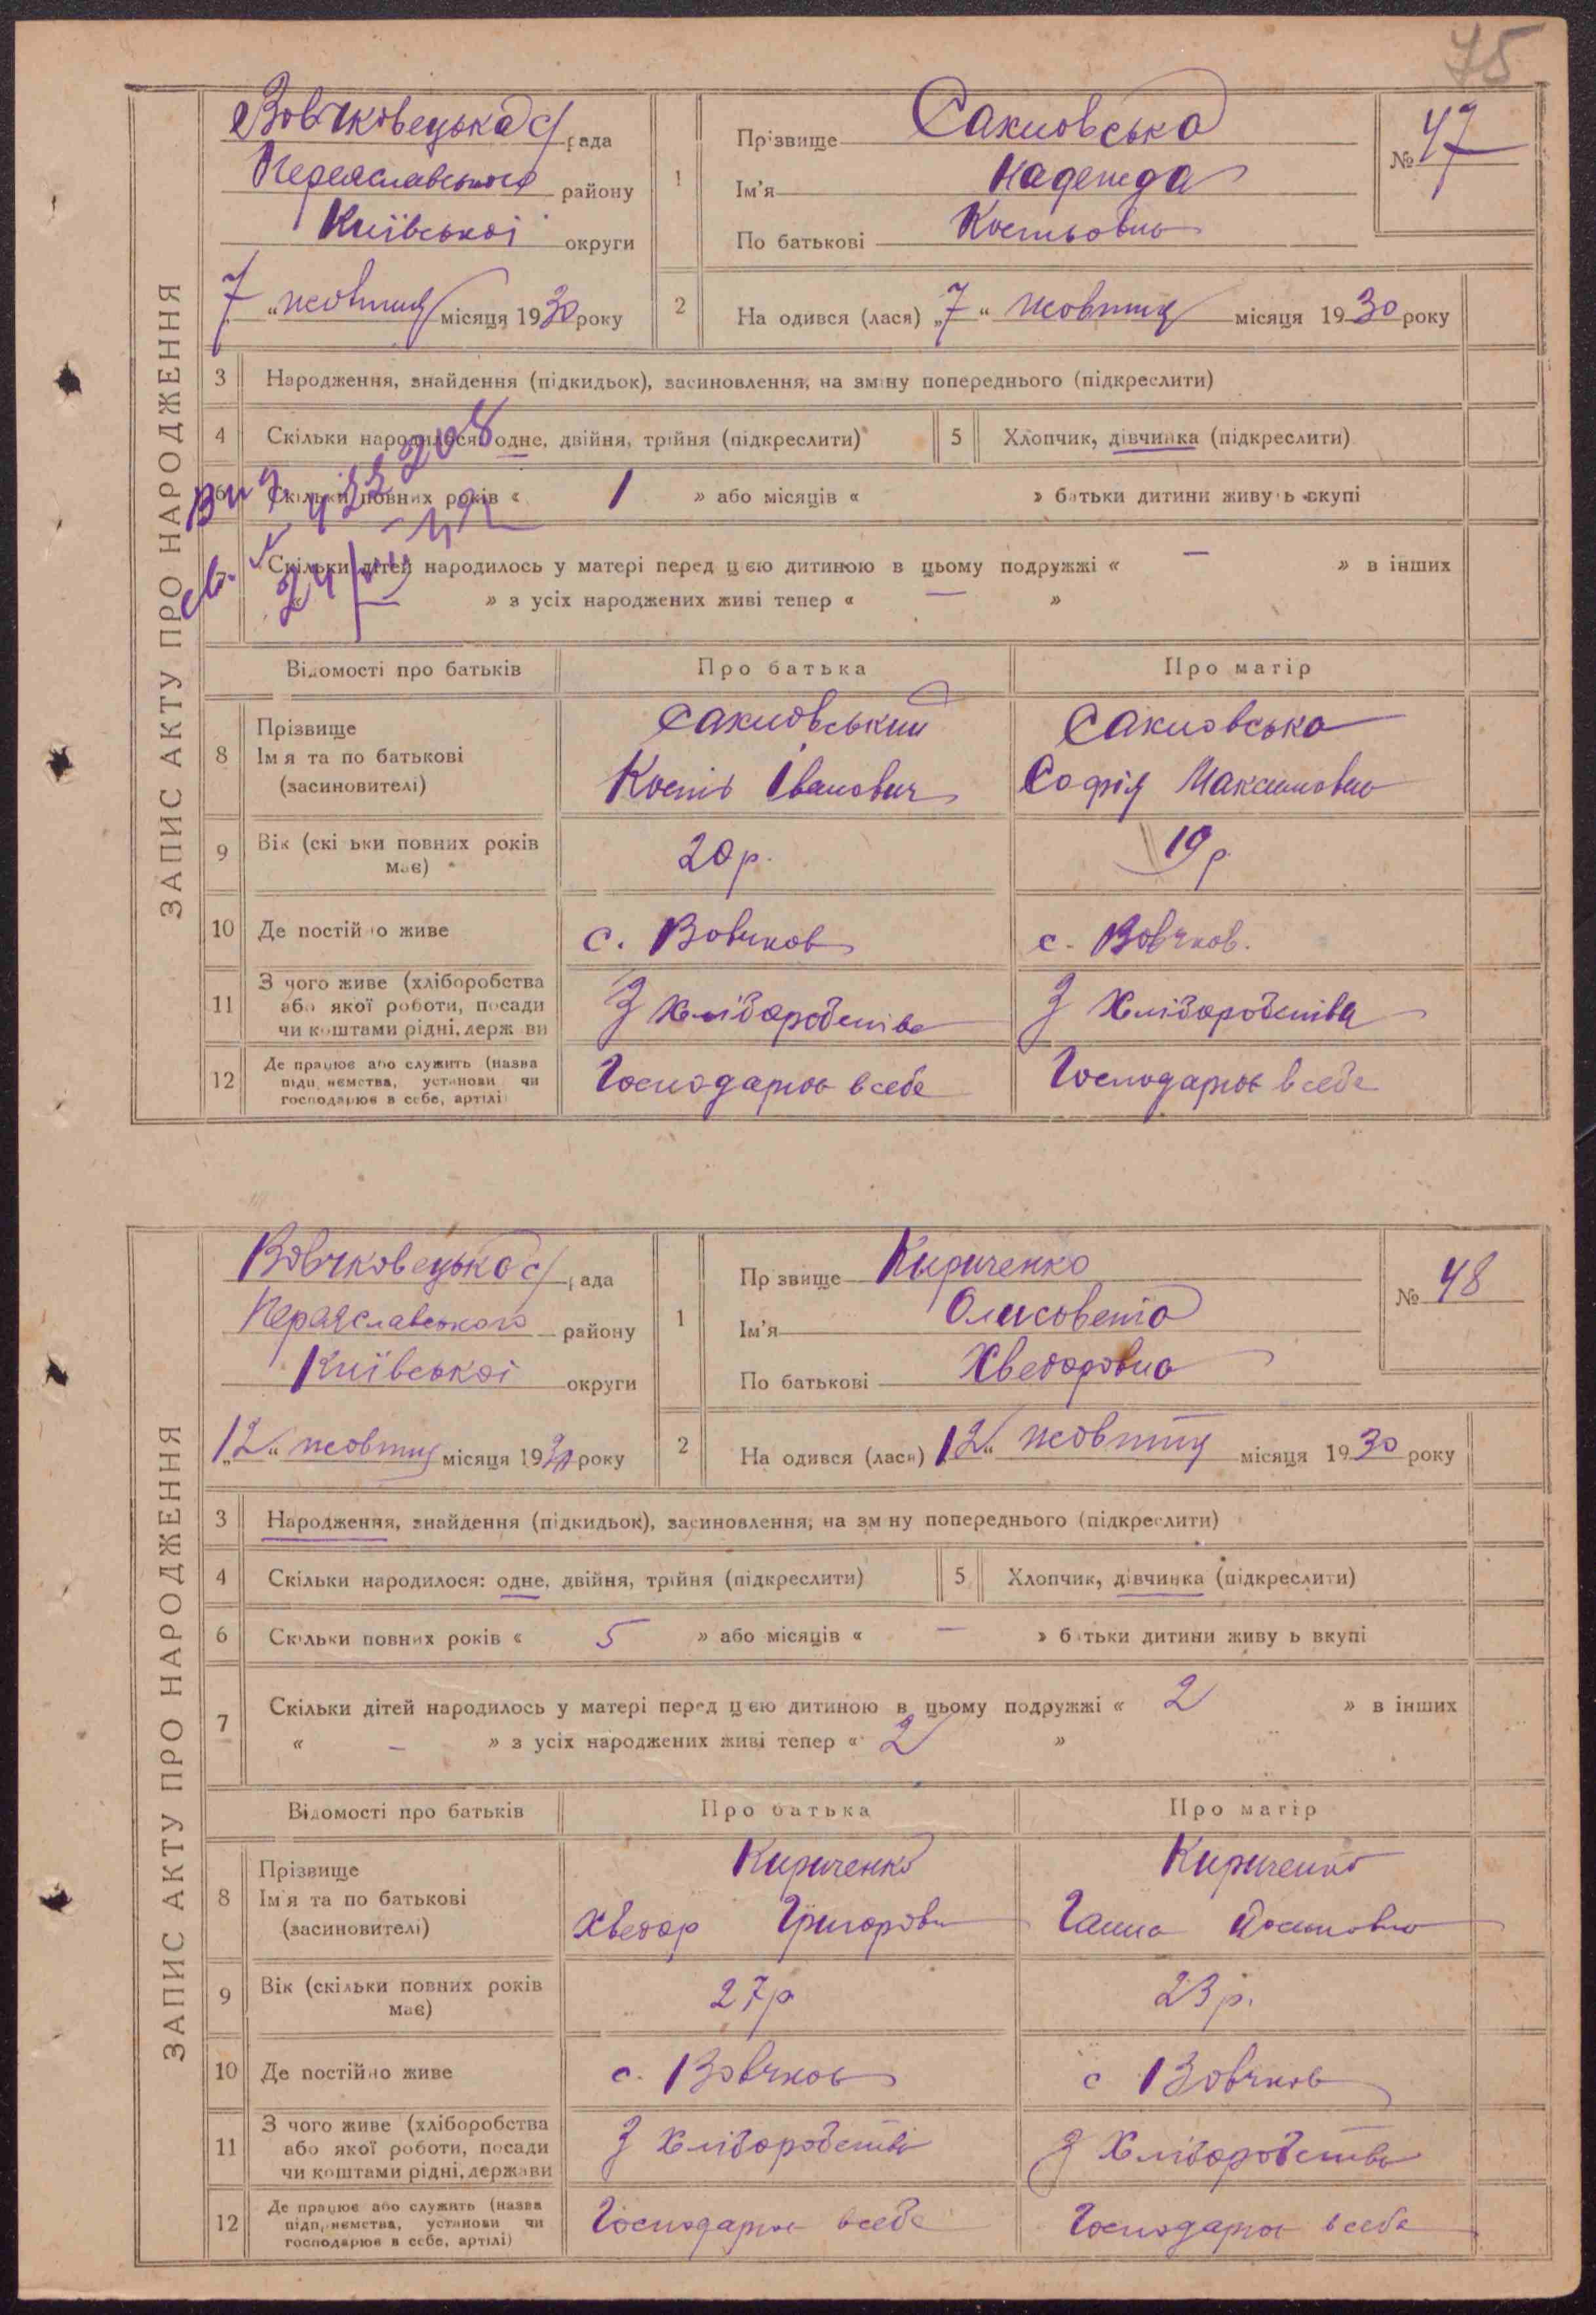 75
ЗАПИС АКТУ ПРО НАРОДЖЕННЯ
Вовчковецька с/рада
Переяславського району
Київської округи
"7" жовтня місяця 1930 року
1
Прізвище Сахновська
Ім'я Надежда
По батькові Костьовна
№ 47
2 На одився (лася) "7" жовтня місяця 1930 року
3 Народження, знайдення (підкидьок), засиновлення, на зміну попереднього (підкреслити)
4 Скільки народилося: одне, двійня, трійня (підкреслити) 5 Хлопчик, дівчинка (підкреслити)
6 Скільки повних років « 1 » або місяців « » батьки дитини живуть вкупі
Скільки дітей народилось у матері перед цією дитиною в цьому подружжі « — » в інших
« — » з усіх народжених живі тепер « — »
Відомості про батьків Про батька Про матір
8 Прізвище Ім'я та по батькові (засиновителі)
Сахновський Сахновська
Кость Іванович Софія Максимовно
9 Вік (скільки повних років має) 20 р. 19 р
10 Де постійно живе с. Вовчков с. Вовчков.
11 З чого живе (хліборобства або якої роботи, посади чи коштами рідні, держави
З Хліборобства З Хліборобства
12 Де працює або служить (назва підприємства, установи чи господарює в себе, артілі)
Господарює в себе Господарює в себе
ЗАПИС АКТУ ПРО НАРОДЖЕННЯ
Вовчковецька с/рада
Переяславського району
Київської округи
"12" жовтня місяця 1930 року
1
Прізвище Кириченко
Ім'я Олисовета
По батькові Хведоровна
№ 48
2 На одився (лася) "12" жовтня місяця 1930 року
3 Народження, знайдення (підкидьок), засиновлення, на зміну попереднього (підкреслити)
4 Скільки народилося: одне, двійня, трійня (підкреслити) 5 Хлопчик, дівчинка (підкреслити)
6 Скільки повних років « 5 » або місяців « — » батьки дитини живуть вкупі
7 Скільки дітей народилось у матері перед цією дитиною в цьому подружжі « 2 » в інших
« — » з усіх народжених живі тепер « 2 »
Відомості про батьків Про батька Про матір
8 Прізвище Ім'я та по батькові (засиновителі)
Кириченко Кириченко
Хведор Григоров Ганна
9 Вік (скільки повних років має) 27 р 23 р.
10 Де постійно живе с. Вовчков с Вовчков
11 З чого живе (хліборобства або якої роботи, посади чи коштами рідні, держави
З Хліборобства З Хліборобства
12 Де працює або служить (назва підприємства, установи чи господарює в себе, артілі)
Господарює в себе Господарює в себе